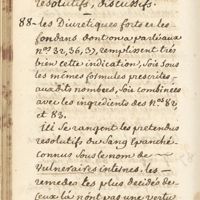 resolutifs, discussifs.
88 - les Diuretiques forts et les
fondans dont on a parlé aux
nos 32, 36, 37, remplissent très
bien cette indication, soit sous
les mêmes formules prescrites
aux dits nombres, soit combinées
avec les ingredients des Nos 82
et 83.
Ici se rangent les pretendus
resolutifs du Sang Epanché
connus sous le nom de
Vulneraires internes. les
remedes les plus decidés de
ceux là n'ont pas une vertu